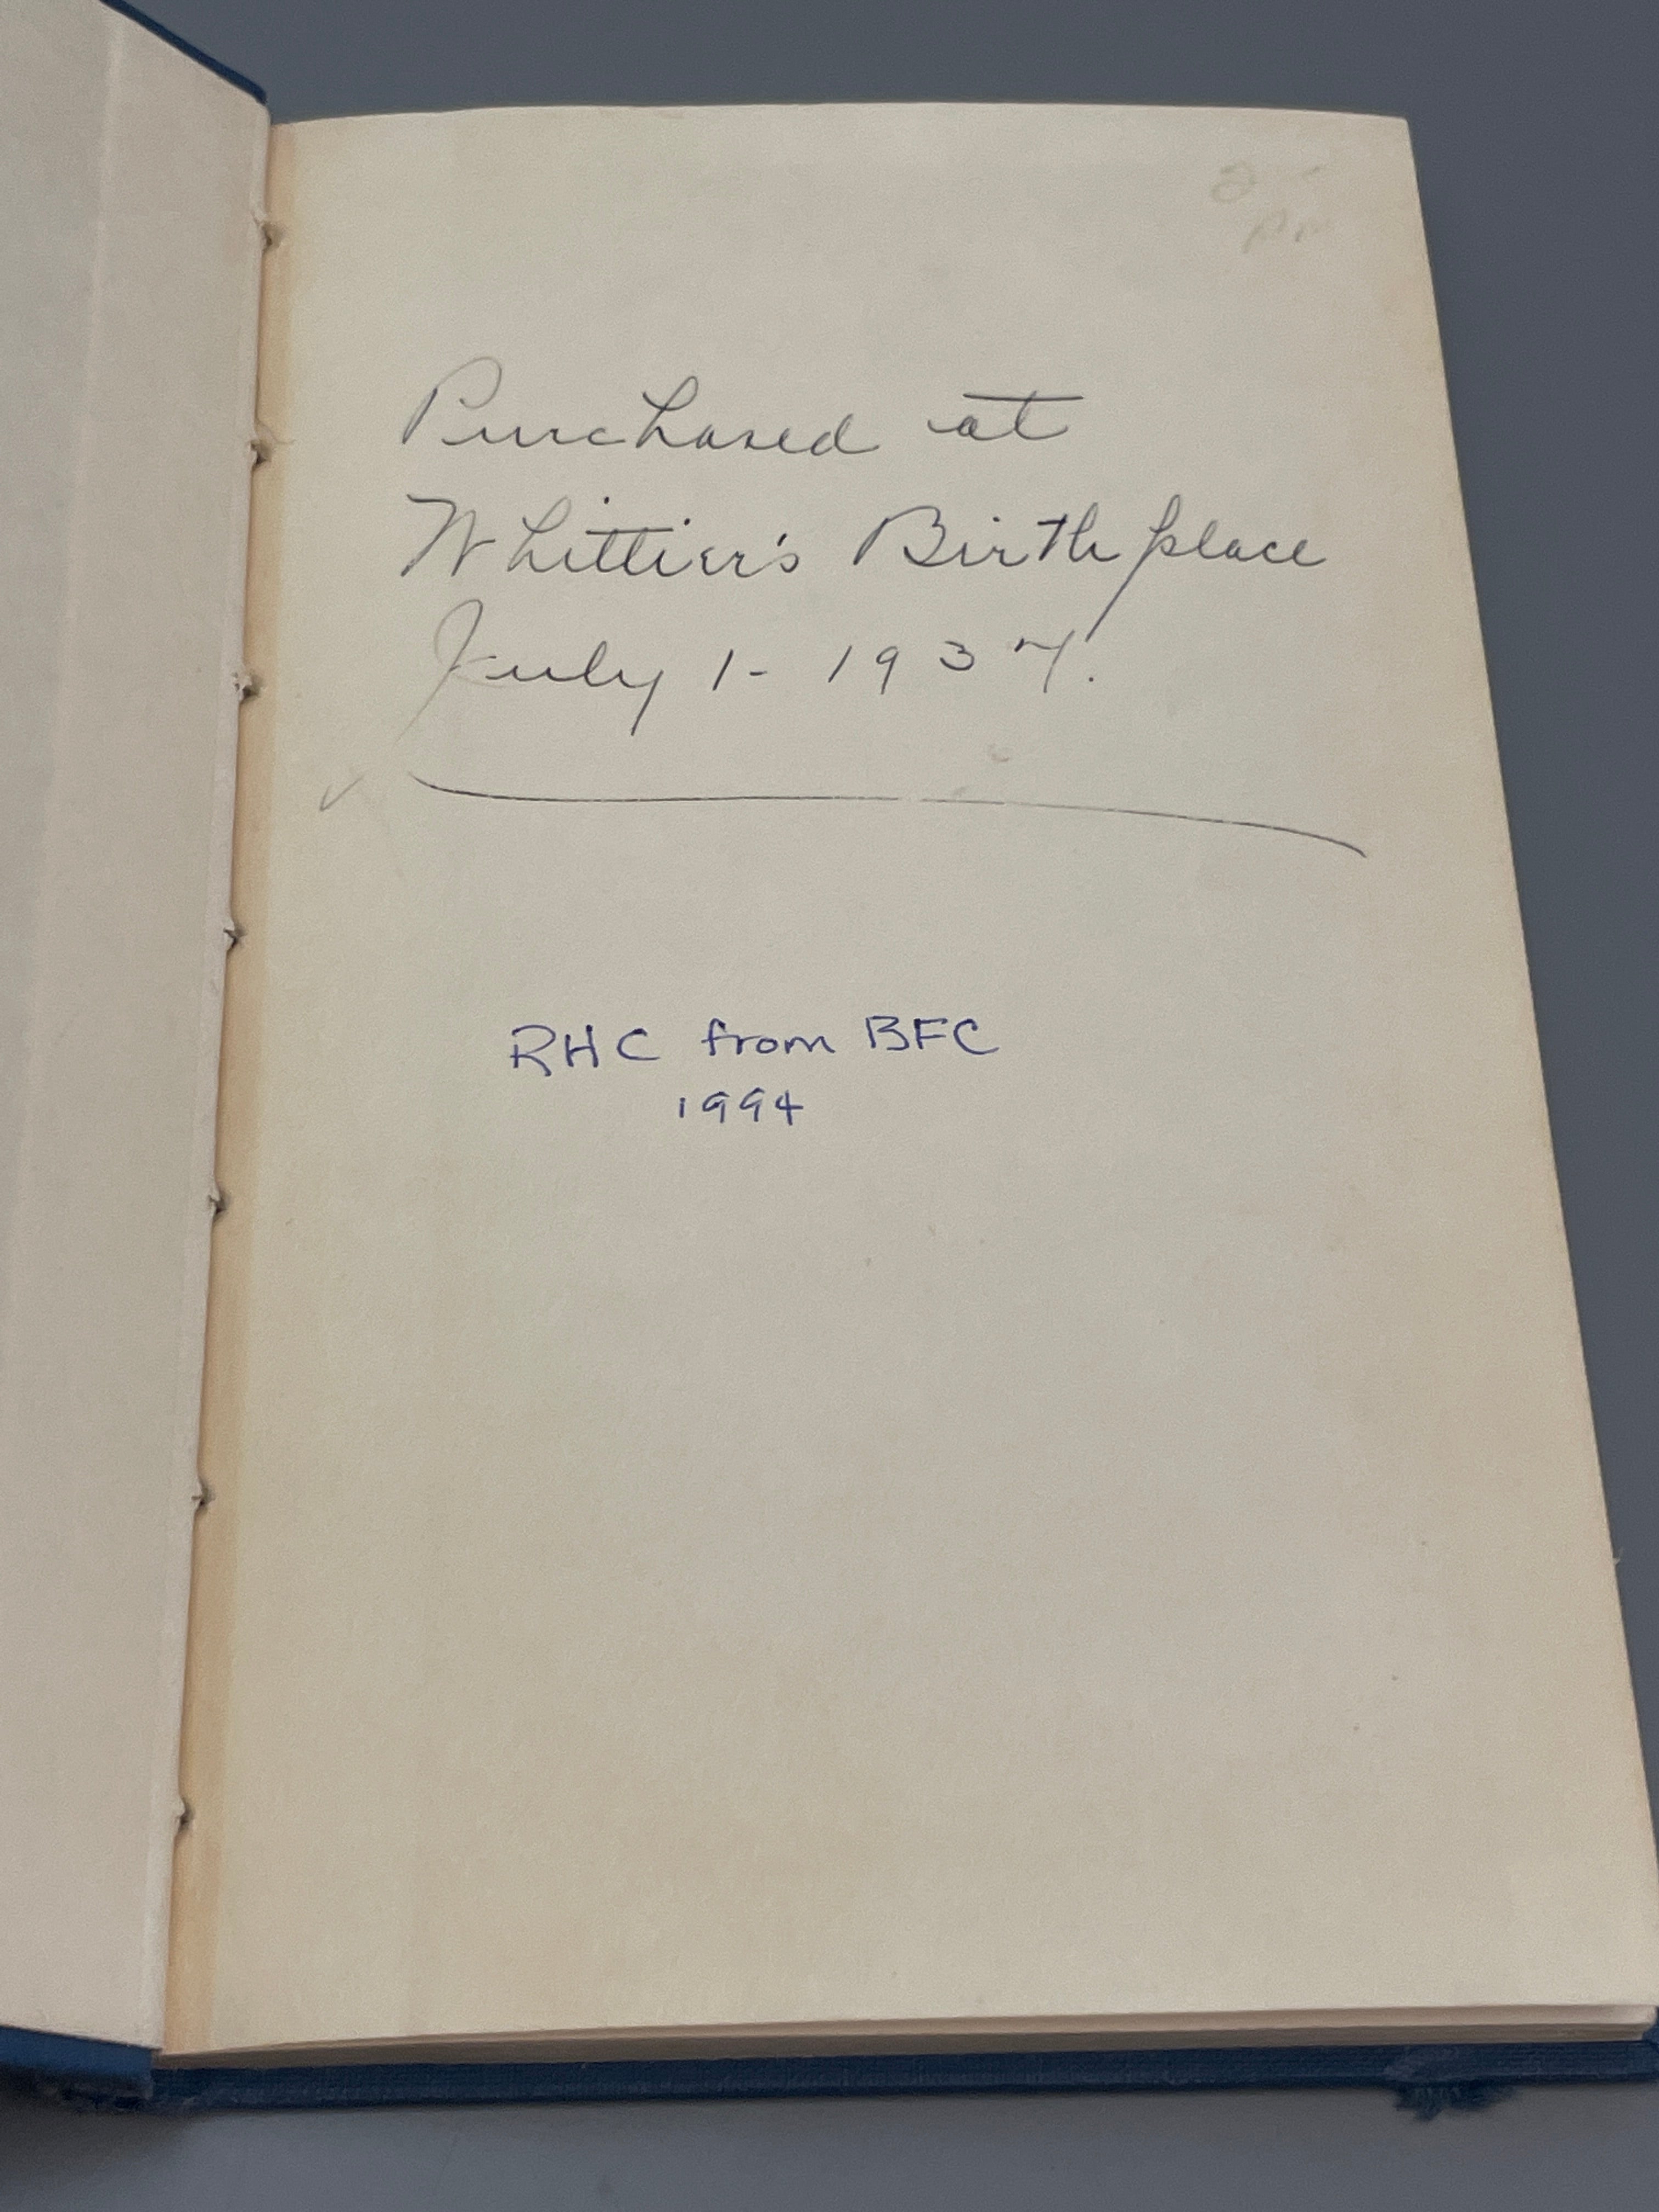 Purchased at
Whittier's Birthplace
July 1- 1937.
RHC from BFC
1994